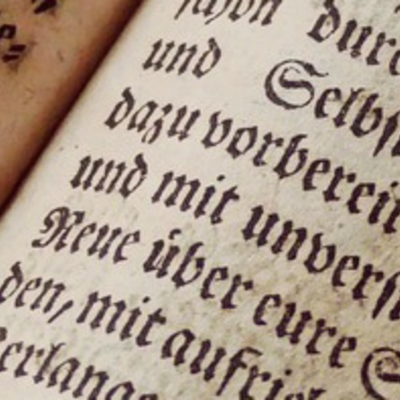 schon durc
und Selbs
dazu vorberei
und mit unvers
Reue über eure
den, mit aufric
erlang